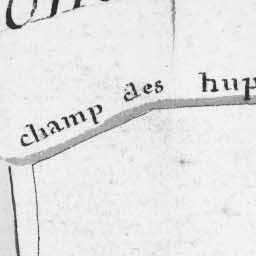 champ des hup